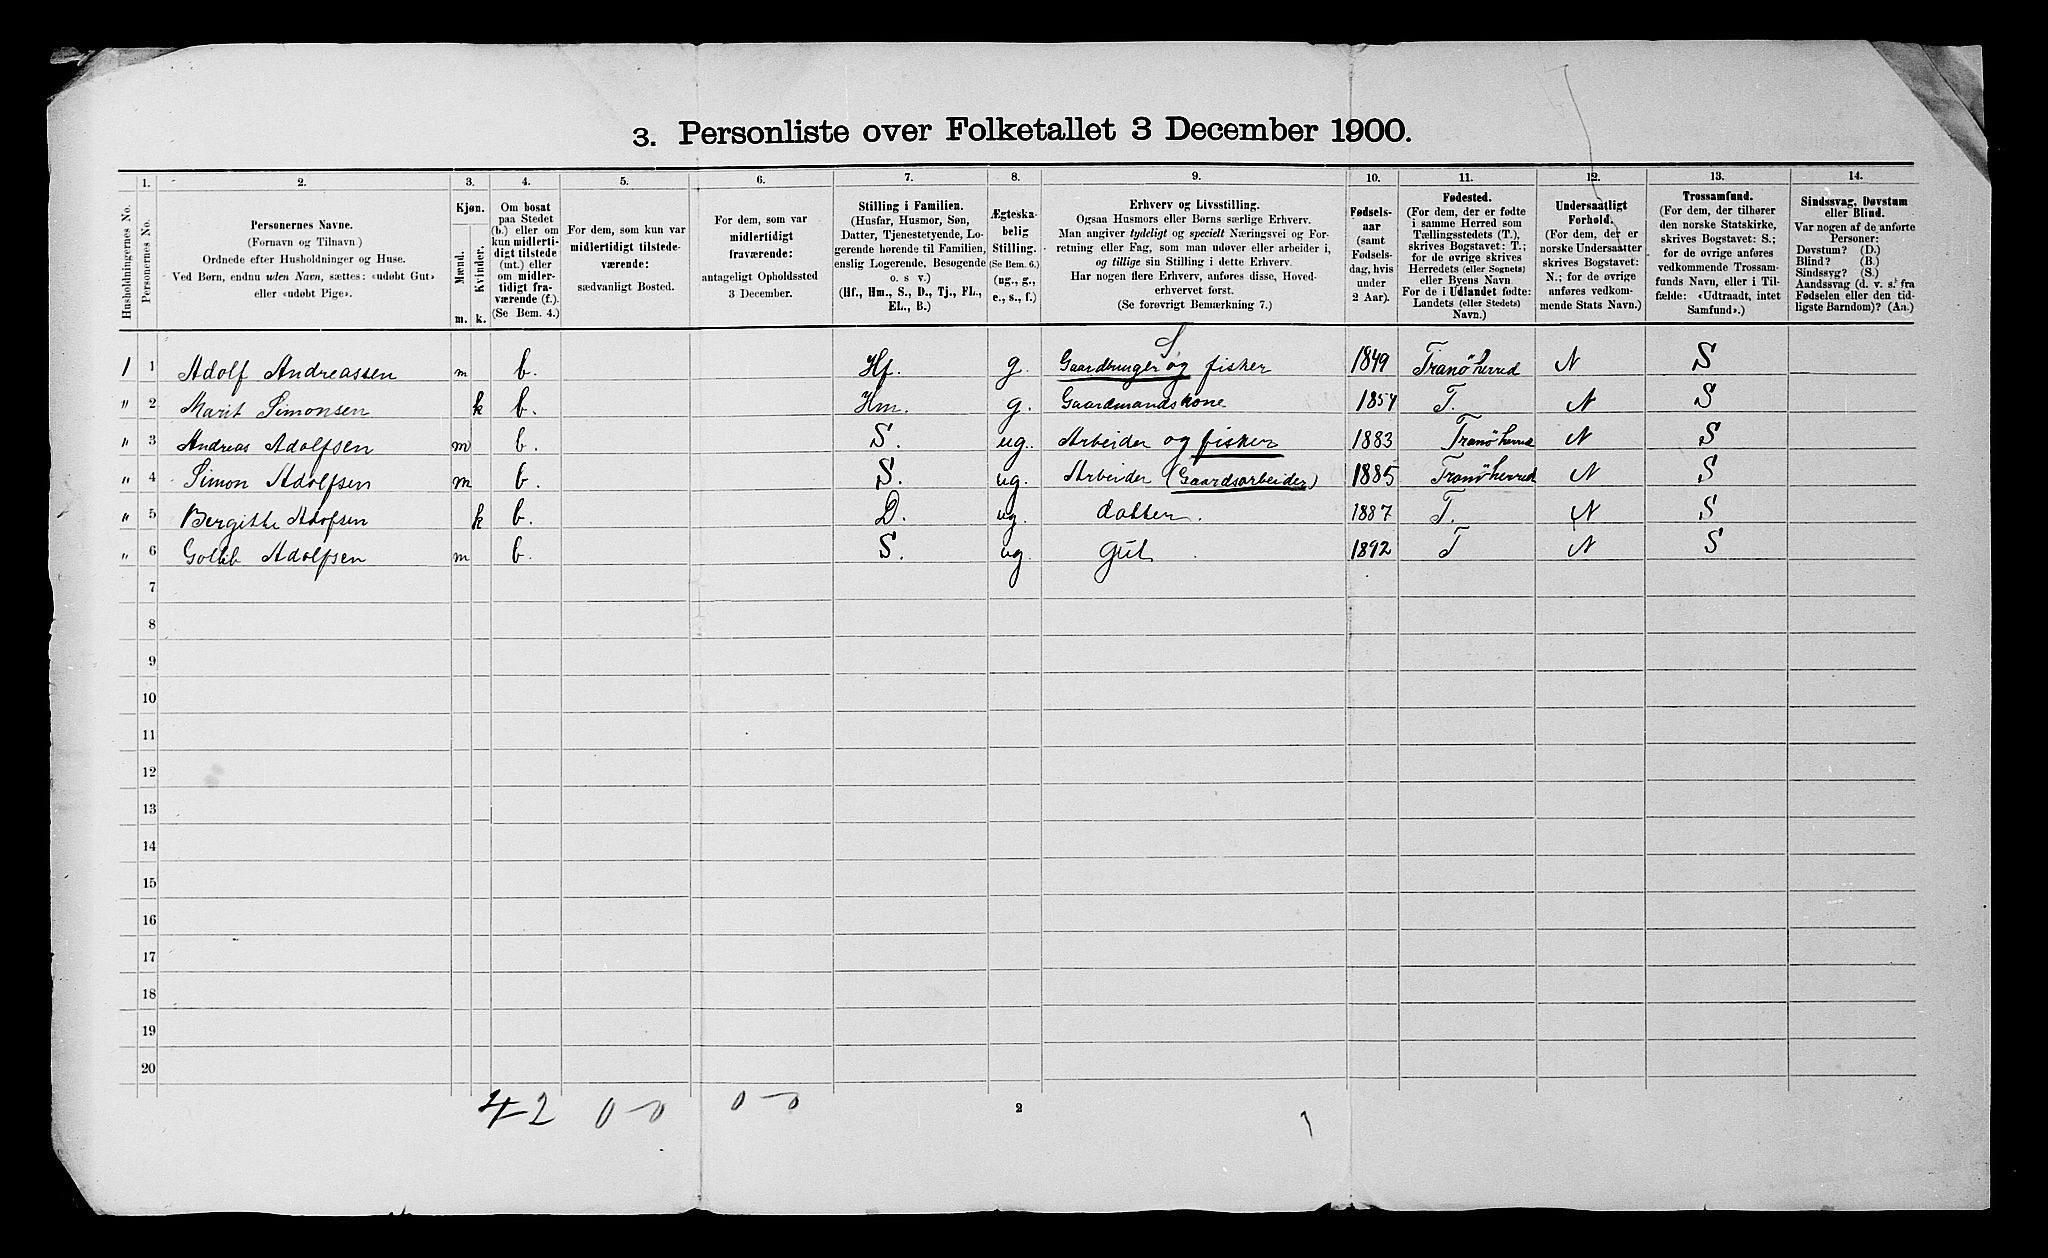 3. Personliste over Folketallet 3 December 1900.
1. 2. 3. 4. 5. 6. 7. 8. 9. 10. 11. 12. 13. 14.
Husholdningernes No.
Personernes No.
Personernes Navne.
(Fornavn og Tilnavn)
Ordnede efter Husholdninger og Huse.
Ved Børn, endnu uden Navn, sættes: «udøbt Gut»
eller «udøbt Pige».
Kjøn.
Mænd.
Kvinder.
m. k.
Om bosat
paa Stedet
(b.) eller om
kun midlerti-
digt tilstede
(mt.) eller
om midler-
tidigt fra-
værende (f.)
(Se Bem. 4.)
For dem, som kun var
midlertidigt tilstede-
værende:
sædvanligt Bosted.
For dem, som var
midlertidigt
fraværende:
antageligt Opholdssted
3 December.
Stilling i Familien.
(Husfar, Husmor, Søn,
Datter, Tjenestetyende, Lo-
gerende hørende til Familien,
enslig Logerende, Besøgende
o. s v.)
(Hf., Hm., S., D., Tj., FL.,
EL., B.)
Ægteska-
belig
Stilling.
(Se Bem. 6.)
(ug., g.,
e., s., f.)
Erhverv og Livsstilling.
Ogsaa Husmors eller Børns særlige Erhverv.
Man angiver tydeligt og specielt Næringsvei og For-
retning eller Fag, som man udover eller arbeider i,
og tillige sin Stilling i dette Erhverv.
Har nogen flere Erhverv, anføres disse, Hoved-
erhvervet først.
(Se forøvrigt Bemærkning 7.)
Fødsels-
aar
(samt
Fødsels-
dag, hvis
under
2 Aar).
Fødested.
(For dem, der er fødte
i samme Herred som
Tællingsstedets (T.),
skrives Bogstavet: T.;
for de øvrige skrives
Herredets (eller Sognets)
eller Byens Navn
For de i Udlandet fødte:
Landets (eller Stedets)
Navn.)
Undersaatligt
Forhold.
(For dem, der er
norske Undersaatter
skrives Bogstavet:
N.; for de øvrige
anføres vedkom-
mende Stats Navn.)
Trossamfund.
(For dem, der tilhører
den norske Statskirke,
skrives Bogstavet: S.;
for de øvrige anføres
vedkommende Trossam-
funds Navn, eller i Til-
fælde: «Udtraadt, intet
Samfund».)
Sindssvag, Døvstum
eller Blind.
Var nogen af de anførte
Personer:
Døvstum? (D.)
Blind? (B.)
Sindssyg? (S.)
Aandssvag (d. v. s. fra
Fødselen eller den tid-
ligste Barndom)? (Aa.)
S
1 1 Adolf Andreassen m b. Hf. g. Gaardbruger og fisker 1849 Tranöherred N S
" 2 Marit Simonsen k b. Hm. g. Gaardmandskone 1854 T. N S
" 3 Andreas Adolfsen m b. S. ug. Arbeider og fisker 1883 Tranöherred N S
" 4 Simon Adolfsen m b. S. ug. Arbeider (Gaardsarbeider) 1885 Tranöherred N S
" 5 Bergitte Adofsen k b. D. ug. datter. 1887 T. N S
" 6 Gotlib Adolfsen m b. S. ug. Gut 1892 T N S
7
8
9
10
11
12
13
14
15
16
17
18
19
20
4-2 0-0 0-0
2